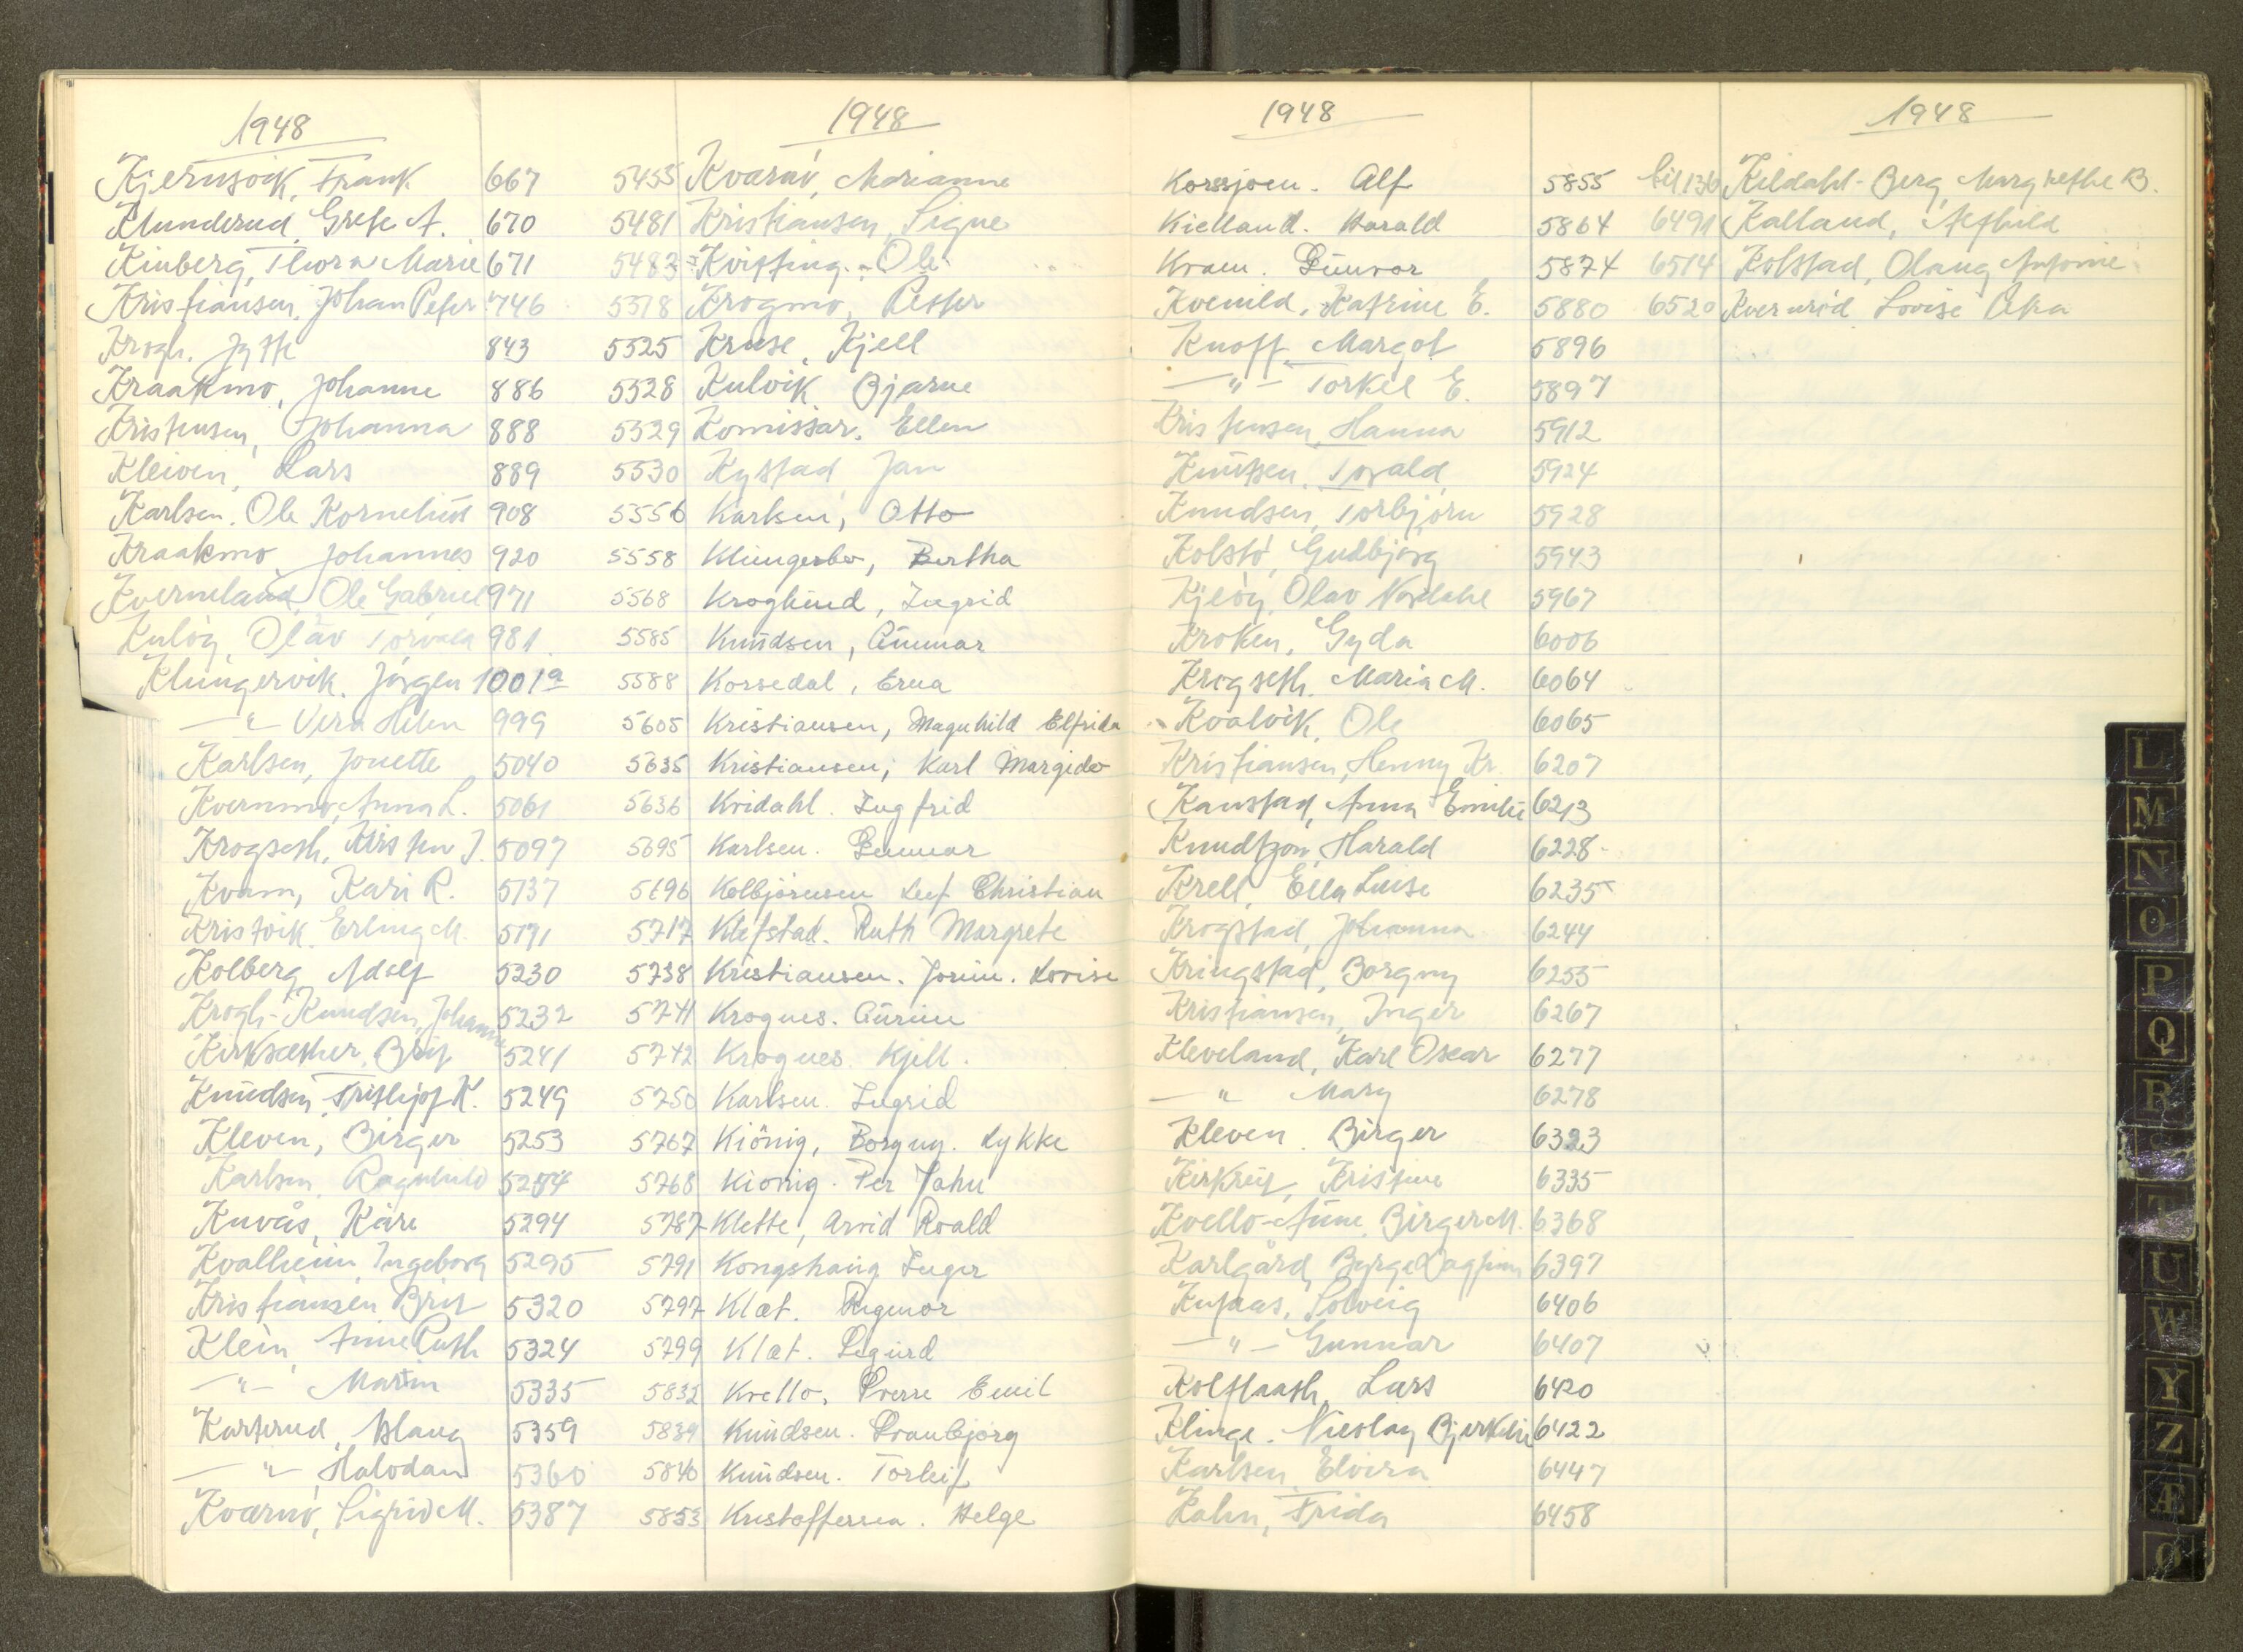 1948
Kjernsvik, Frank 667
Klunderud, Grete A. 670
Kinberg, Thora Marie 671
Kristiansen, Johan Peter 746
Krogh, Jytte 843
Kraakmo, Johanne 886
Kristensen, Johanna 888
Kleiven, Lars 889
Karlsen, Ole Kornelius 908
Kraakmo, Johannes 920
Kverneland, Ole Gabriel 971
Kuløy, Olav Torvald 981
Klungervik, Jørgen 1001a
—"— Vera Helen 999
Karlsen, Jonette 5040
Kvernmo, Anna L. 5061
Krogseth, Kirsten J. 5097
Kvam, Kari R. 5137
Kristvik, Erling M. 5191
Kolberg, Adolf 5230
Krogh-Knudsen, Johanne 5232
Kirksæther, Brit 5241
Knudsen, Frithjof K. 5249
Kleven, Birger 5253
Karlsen, Ragnhild 5254
Kuvås, Kåre 5294
Kvalheim, Ingeborg 5295
Kristiansen, Brit 5320
Klein, Anne Ruth 5324
—"— Martin 5335
Karterud, Aslaug 5359
—"— Halvdan 5360
Kvarnø, Sigrid M. 5387
1948
5455 Kvarnø, Marianne
5481 Kristiansen, Signe
5483 Kvitting, Ole
5518 Krogmo, Petter
5525 Kruse, Kjell
5528 Kulvik, Bjarne
5529 Komissar, Ellen
5530 Kystad Jan
5556 Karlsen, Otto
5558 Klungerbo, Bertha
5568 Kroglund, Ingrid
5585 Knudsen, Gunnar
5588 Korsedal, Erna
5605 Kristiansen, Magnhild Elfrida
5635 Kristiansen, Karl Margido
5636 Kvidahl. Ingfrid
5695 Karlsen. Gunnar
5696 Kolbjørnsen Leif Christian
5717 Klefstad. Ruth Margrete
5738 Kristiansen. Jorun. Lovise
5741 Krognes. Gurine
5742 Krognes. Kjell.
5750 Karlsen. Ingrid
5767 Kiönig, Borgny. Lykke
5768 Kionig. Per John
5787 Klette, Arvid Roald
5791 Kongshaug Inger
5797 Klæt. Regmor
5799 Klæt. Sigurd
5832 Kvello. Sverre Emil
5839 Knudsen. Svanbjørg
5840 Knudsen. Torleif
5853 Kristoffersen. Helge
1948
Korssjoen. Alf 5855
Kielland. Harald 5864
Kvam. Gunvor 5874
Kvenild, Katrine E. 5880
Knoff, Margot 5896
—"— Torkel E. 5897
Kristensen, Hanna 5912
Knutsen, Tovald 5924
Knudsen, Torbjørn 5928
Kolstø, Gudbjørg 5943
Kjeøy, Olav Nordahl 5967
Kroken, Gyda 6006
Krogseth, Maria M. 6064
Kvalvik, Ole 6065
Kristiansen, Henny Kr. 6207
Kanstad, Anna Emilie 6213
Knudtzon, Harald 6228
Krell, Ella Luise 6235
Krogstad, Johanna 6244
Kringstad, Borgny 6255
Kristiansen, Inger 6267
Kleveland, Karl Oscar 6277
—"— Mary 6278
Kleven. Birger 6323
Kirkreit, Kristine 6335
Kvello-Aune, Birger M. 6368
Karlgård, Byrge Dagfinn 6397
Kufaas, Solveig 6406
—"— Gunnar 6407
Kolflaath, Lars 6420
Klinge. Nicolay Bjerkelie 6422
Karlsen, Elvira 6447
Kahn, Frida 6458
1948
bil 136 Kildahl-Berg, Margrethe B.
6491 Kalland, Alfhild
6514 Kolstad, Olaug Antonie
6520 Kvernrød Lovise Olea
L
M
N
O
P
Q
R
S
T
U
W
Y
Z
Æ
Ø